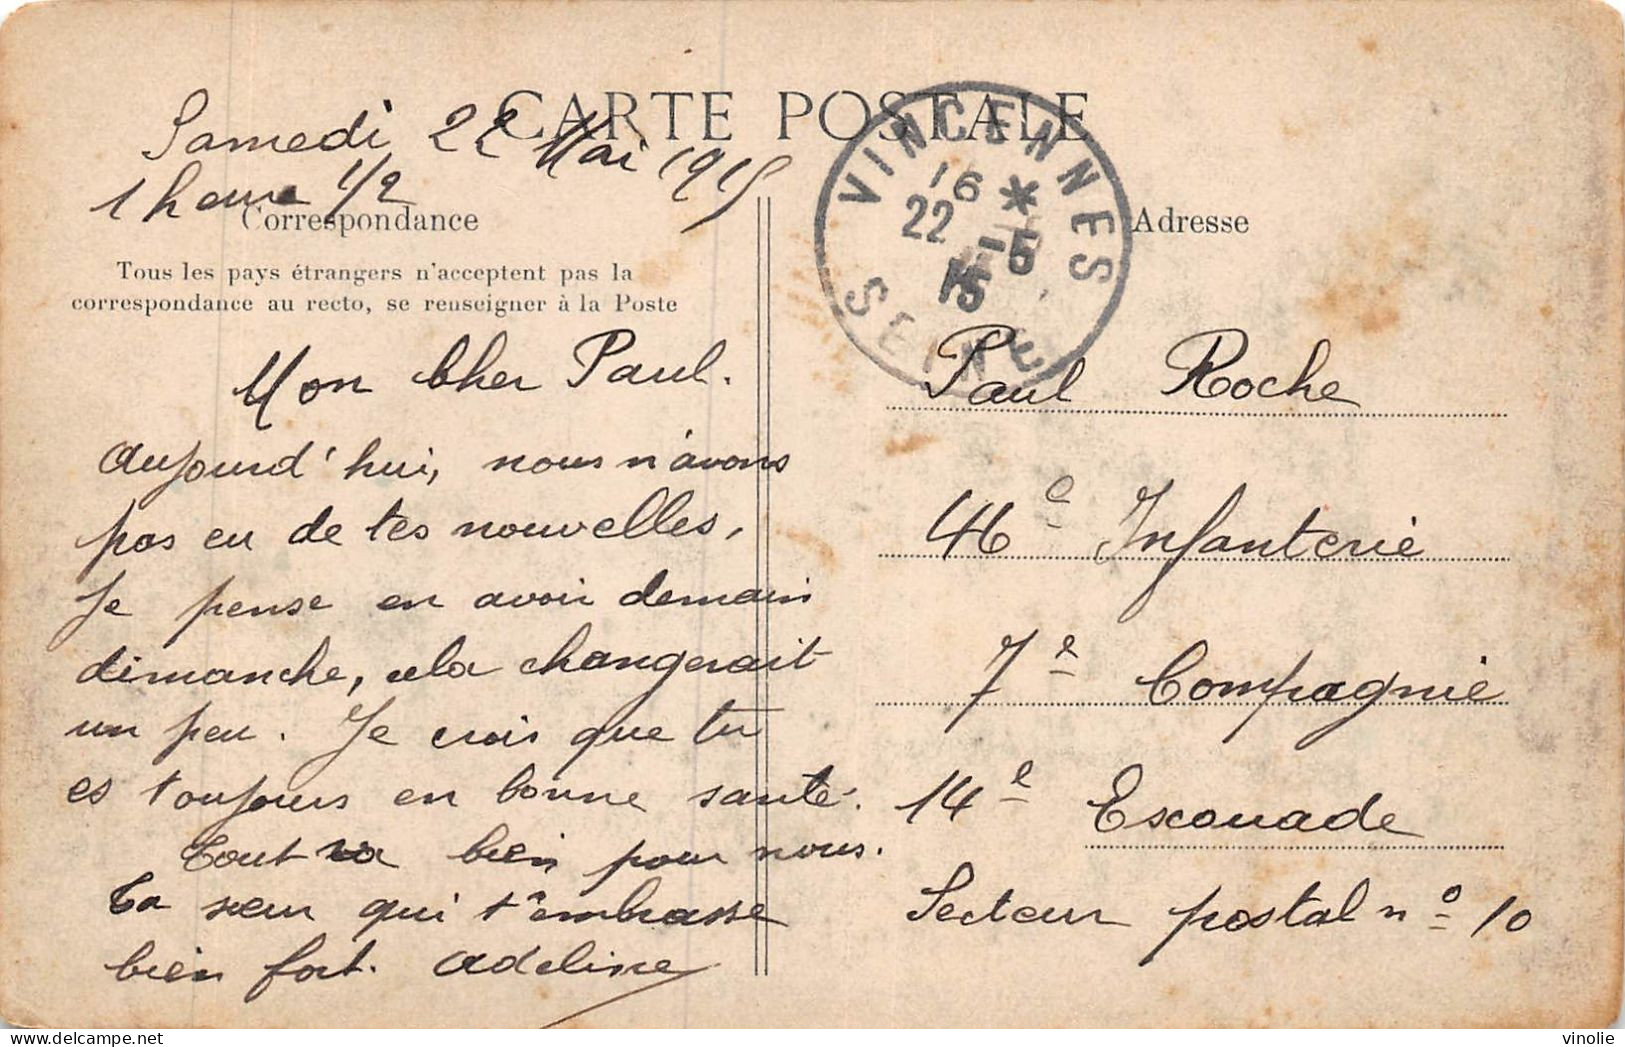 CARTE POSTALE
Samedi 22 Mai 1915
1 heure 1/2
Correspondance
Tous les pays étrangers n'acceptent pas la
correspondance au recto, se renseigner à la Poste
Mon Cher Paul.
Aujourd'hui, nous n'avons
pas eu de tes nouvelles,
Je pense en avoir demain
dimanche, cela changerait
un peu. Je crois que tu
es toujours en bonne santé.
Tout va bien pour nous.
Ta sœur qui t'embrasse
bien fort. Adeline
VINCENNES
16 *
22 -5
15
SEINE
Adresse
Paul Roche
46e Infanterie
7e Compagnie
14e Escouade
Secteur postal no 10
vinolie